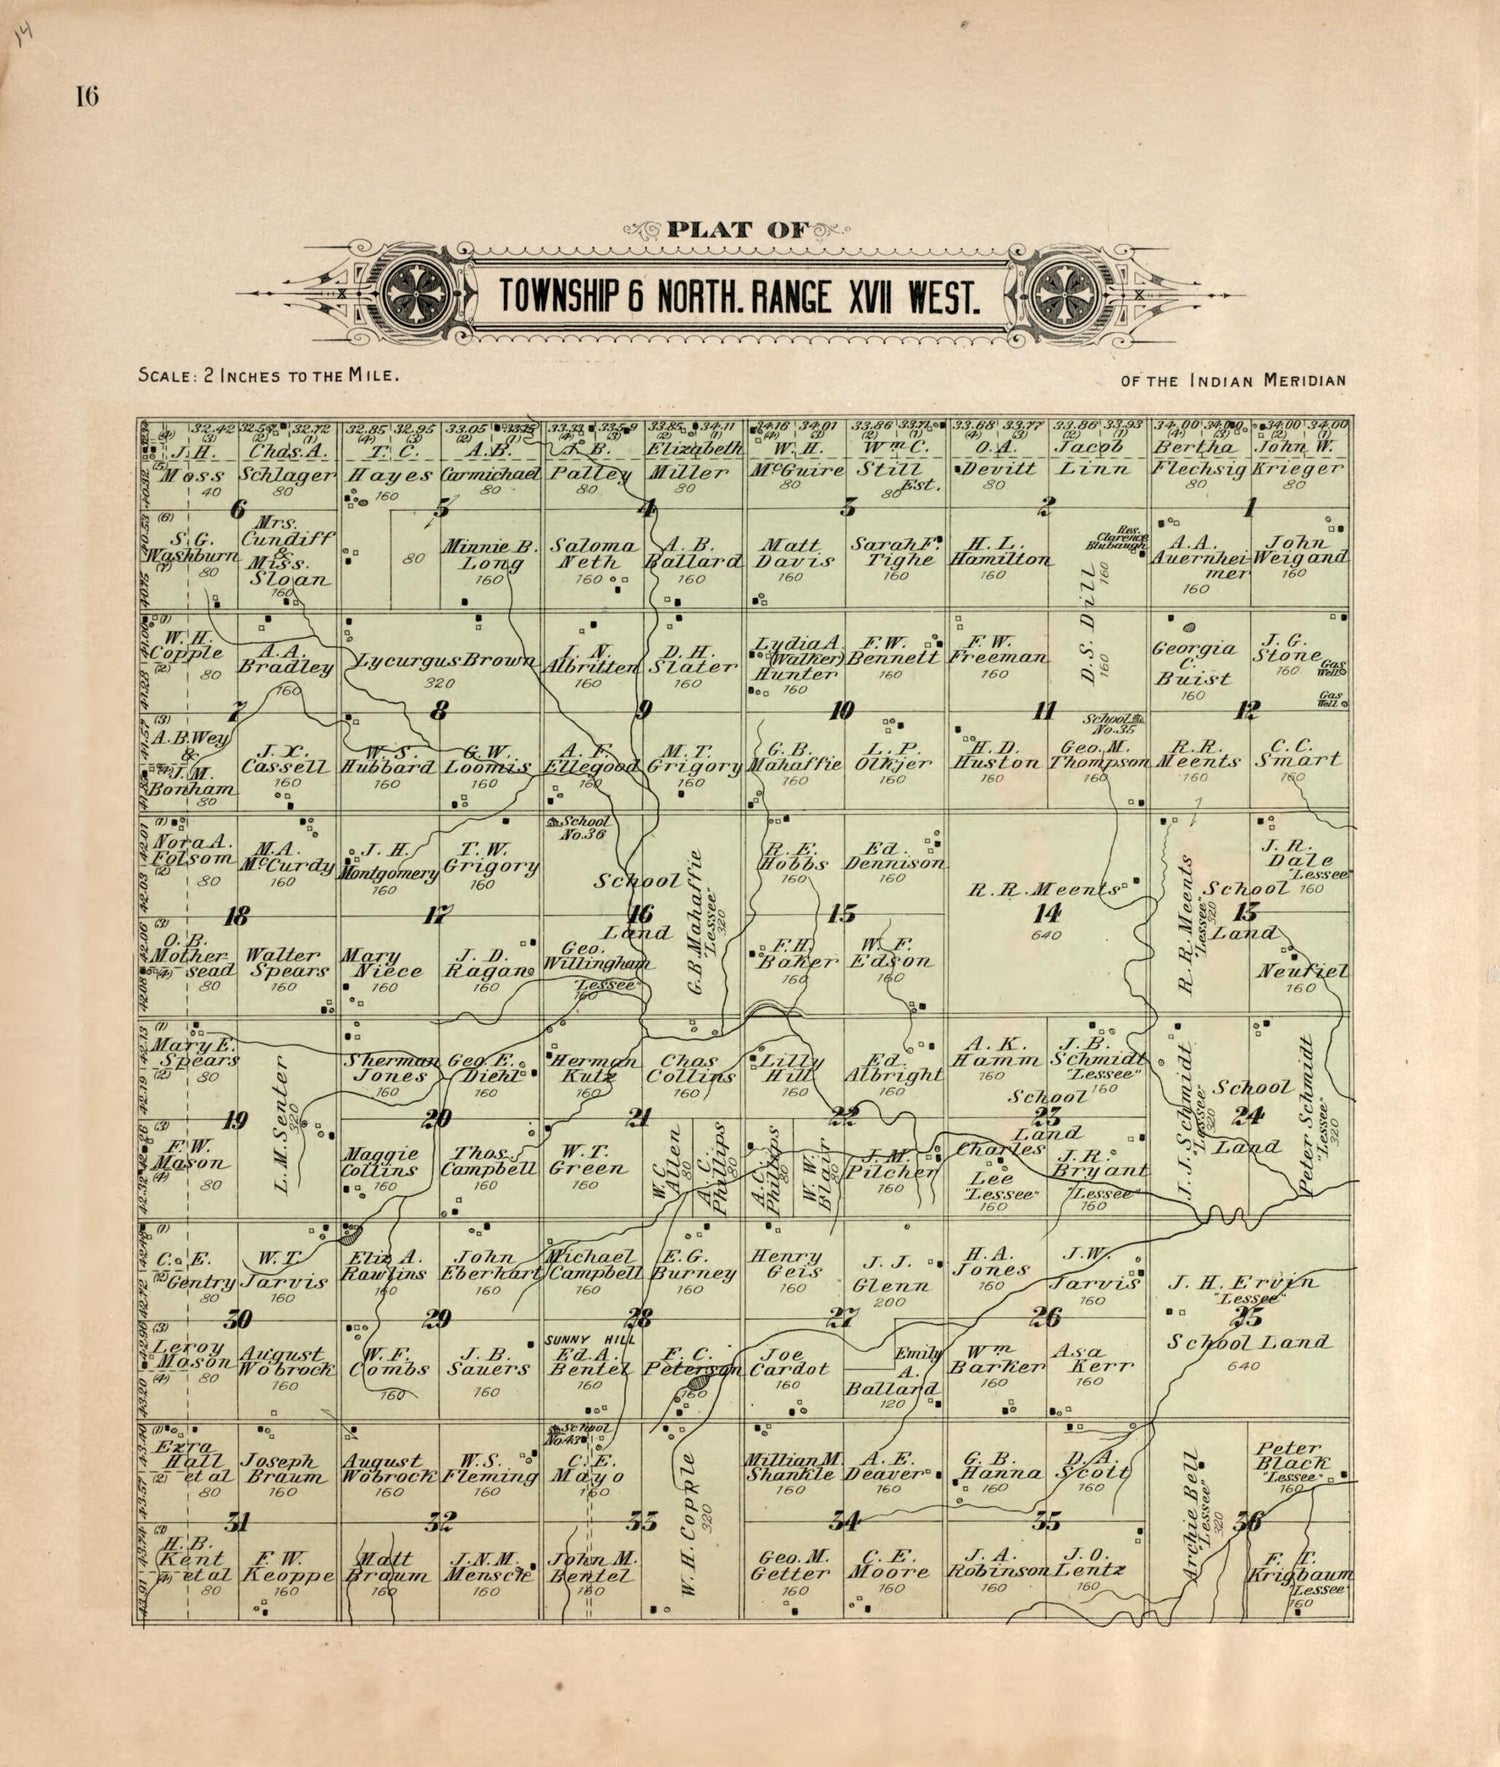 14
16
PLAT OF
TOWNSHIP 6 NORTH. RANGE XVII WEST.
SCALE: 2 INCHES TO THE MILE.
OF THE INDIAN MERIDIAN
32.42 32.72 32.85 32.95 33.05 33.85 34.11 34.16 34.01 33.86 33.68 33.77 33.86 33.93 34.00 34.00 34.00
J. H. Moss 40
Chas. A. Schlager 80
T. C. Hayes 160
A.B. Carmichael 80
Palley 80
Elizabeth Miller 80
W. H. McGuire 80
Wm C. Still Est. 80
O. A. Devitt 80
Jacob Linn
Bertha Flechsig 80
John W. Krieger 80
6 5 4 3 2 1
S. G. Washburn 80
Mrs. Cundiff & Miss. Sloan 160
80
Minnie B. Long 160
Saloma Neth 160
A. B. Ballard 160
Matt Davis 160
Sarah F. Tighe 160
H. L. Hamilton 160
Res. Clarence Blubaugh
D. S. Dill 160 160
A. A. Auernheimer 160
John Weigand 160
W. H. Copple 80
A. A. Bradley 160
Lycurgus Brown 320
Albritten 160
D. H. Slater 160
Lydia A. (Walker) Hunter 160
F. W. Bennett 160
F. W. Freeman 160
Georgia C. Buist 160
J. G. Stone 160
Gas Well
Gas Well
7 8 9 10 11 12
A. B. Wey & J. M. Bonham 80
J. X. Cassell 160
W. S. Hubbard 160
G. W. Loomis 160
A. F. Ellegood 160
M. T. Grigory 160
G. B. Mahaffie 160
L. P. Olkjer 160
H. D. Huston 160
School No. 35
Geo. M. Thompson 160
R. R. Meents 160
C. C. Smart 160
Nora A. Folsom 80
M. A. McCurdy 160
J. H. Montgomery 160
T. W. Grigory 160
School No. 36
School Land
G. B. Mahaffie "Lessee" 320
R. E. Hobbs 160
Ed. Dennison 160
R. R. Meents 640
R. R. Meents "Lessee" 320
J. R. Dale "Lessee" 160
School Land
18 17 16 15 14 13
O. B. Mothersead 80
Walter Spears 160
Mary Niece 160
J. D. Ragan 160
Geo. Willingham "Lessee" 160
F. H. Baker 160
W. F. Edson 160
Neufiel 160
Mary E. Spears 80
L. M. Senter 320
Sherman Jones 160
Geo. E. Diehl 160
Herman Kutz 160
Chas Collins 160
Lilly Hill 160
Ed. Albright 160
A. K. Hamm 160
J. B. Schmidt "Lessee" 160
School Land
J. J. Schmidt "Lessee" 320
School Land
Peter Schmidt "Lessee" 320
19 20 21 22 23 24
F. W. Mason 80
Maggie Collins 160
Thos. Campbell 160
W. T. Green 160
W. C. Allen 80
A. C. Phillips 80
A. C. Phillips 80
W. W. Blair
J. M. Pilcher 160
Charles Lee "Lessee" 160
J. R. Bryant "Lessee" 160
C. E. Gentry 80
W. T. Jarvis 160
Eliz A. Rawlins 160
John Eberhart 160
Michael Campbell 160
E. G. Burney 160
Henry Geis 160
J. J. Glenn 200
H. A. Jones 160
J. W. Jarvis 160
J. H. Ervin "Lessee"
School Land 640
30 29 28 27 26 25
Leroy Mason 80
August Wobrock 160
W. F. Combs 160
J. B. Sauers 160
SUNNY HILL
Ed. A. Bentel 160
F. C. Peterson 160
Joe Cardot 160
Emily A. Ballard 120
Wm Barker 160
Asa Kerr 160
Ezra Hall et al 80
Joseph Braum 160
August Wobrock 160
W. S. Fleming 160
School No. 43
C. E. Mayo 160
W. H. Copple 320
Millian M. Shankle 160
A. E. Deaver 160
G. B. Hanna 160
D. A. Scott 160
Archie Bell "Lessee" 320
Peter Black "Lessee" 160
31 32 33 34 35 36
H. B. Kent et al 80
F. W. Keoppe 160
Matt Braum 160
J. N. M. Mensch 160
John M. Bentel 160
Geo. M. Getter 160
C. E. Moore 160
J. A. Robinson 160
J. O. Lentz 160
F. T. Krigbaum "Lessee" 160